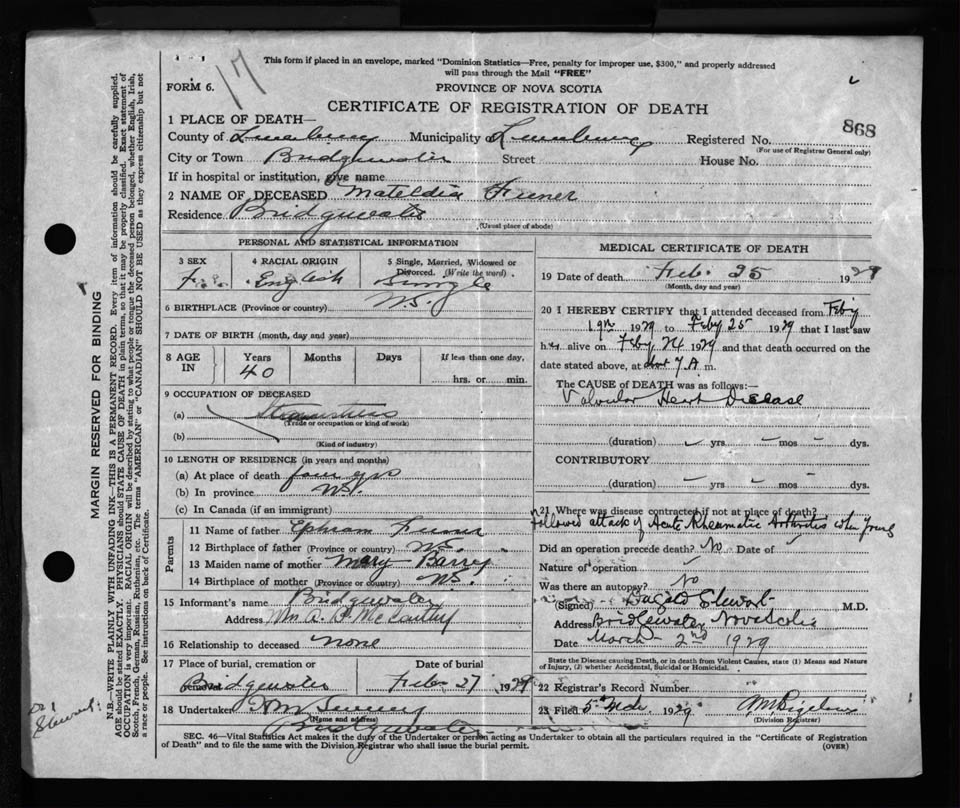 This form if placed in an envelope, marked "Dominion Statistics—Free, penalty for improper use, $300," and properly addressed
will pass through the Mail "FREE"
17
FORM 6.
PROVINCE OF NOVA SCOTIA
CERTIFICATE OF REGISTRATION OF DEATH
868
1 PLACE OF DEATH—
County of Lunenburg Municipality of Lunenburg Registered No.
(For use of Registrar General only)
City or Town Bridgewater Street House No.
If in hospital or institution, give name
2 NAME OF DECEASED Mateldia
Residence Bridgewater
(Usual place of abode)
PERSONAL AND STATISTICAL INFORMATION
3 SEX 4 RACIAL ORIGIN 5 Single, Married, Widowed or
Divorced. (Write the word)
English Single
6 BIRTHPLACE (Province or country) N.S.
7 DATE OF BIRTH (month, day and year)
8 AGE IN Years Months Days If less than one day,
40 hrs. or min.
9 OCCUPATION OF DECEASED
(a)
(Trade or occupation or kind of work)
(b)
(Kind of industry)
10 LENGTH OF RESIDENCE (in years and months)
(a) At place of death four yrs
(b) In province N.S.
(c) In Canada (if an immigrant)
Parents
11 Name of father Ephraim
12 Birthplace of father (Province or country) N.S.
13 Maiden name of mother Mary Barry
14 Birthplace of mother (Province or country) N.S.
15 Informant's name Bridgewater
Address Wm A. McCarthy
16 Relationship to deceased none
17 Place of burial, cremation or Date of burial
removal Bridgewater Feb 27 1929
18 Undertaker
(Name and address)
Bridgewater
MEDICAL CERTIFICATE OF DEATH
19 Date of death Feb. 25 1929
(Month, day and year)
20 I HEREBY CERTIFY that I attended deceased from Feby
19th 1929 to Feby 25 1929 that I last saw
her alive on Feby 24 1929 and that death occurred on the
date stated above, at about 7 A m.
The CAUSE OF DEATH was as follows:
Valvular Heart Disease
(duration) yrs mos dys.
CONTRIBUTORY
(duration) yrs mos dys.
21 Where was disease contracted if not at place of death?
Followed attack of Acute Rheumatic Arthritis when young
Did an operation precede death? No Date of
Nature of operation
Was there an autopsy? No
(Signed) Dugald Stewart M.D.
Address Bridgewater Nova Scotia
Date March 2nd 1929
State the Disease causing Death, or in death from Violent Causes, state (1) Means and Nature
of Injury, (2) whether Accidental, Suicidal or Homicidal.
22 Registrar's Record Number
23 Filed 5th Mch 1929
(Division Registrar)
SEC. 46—Vital Statistics Act makes it the duty of the Undertaker or person acting as Undertaker to obtain all the particulars required in the "Certificate of Registration
of Death" and to file the same with the Division Registrar who shall issue the burial permit.
(OVER)
MARGIN RESERVED FOR BINDING
N.B.—WRITE PLAINLY WITH UNFADING INK—THIS IS A PERMANENT RECORD. Every item of information should be carefully supplied.
AGE should be stated EXACTLY. PHYSICIANS should STATE CAUSE OF DEATH in plain terms, so that it may be properly classified. Exact statement of
OCCUPATION is very important. RACIAL ORIGIN will be described by stating to what people or tongue the deceased person belonged, whether English, Irish,
Scotch, French, German, Russian, Ruthenian, etc. The terms "AMERICAN" or "CANADIAN" SHOULD NOT BE USED as they express citizenship but not
a race or people. See instructions on back of Certificate.
Stewart